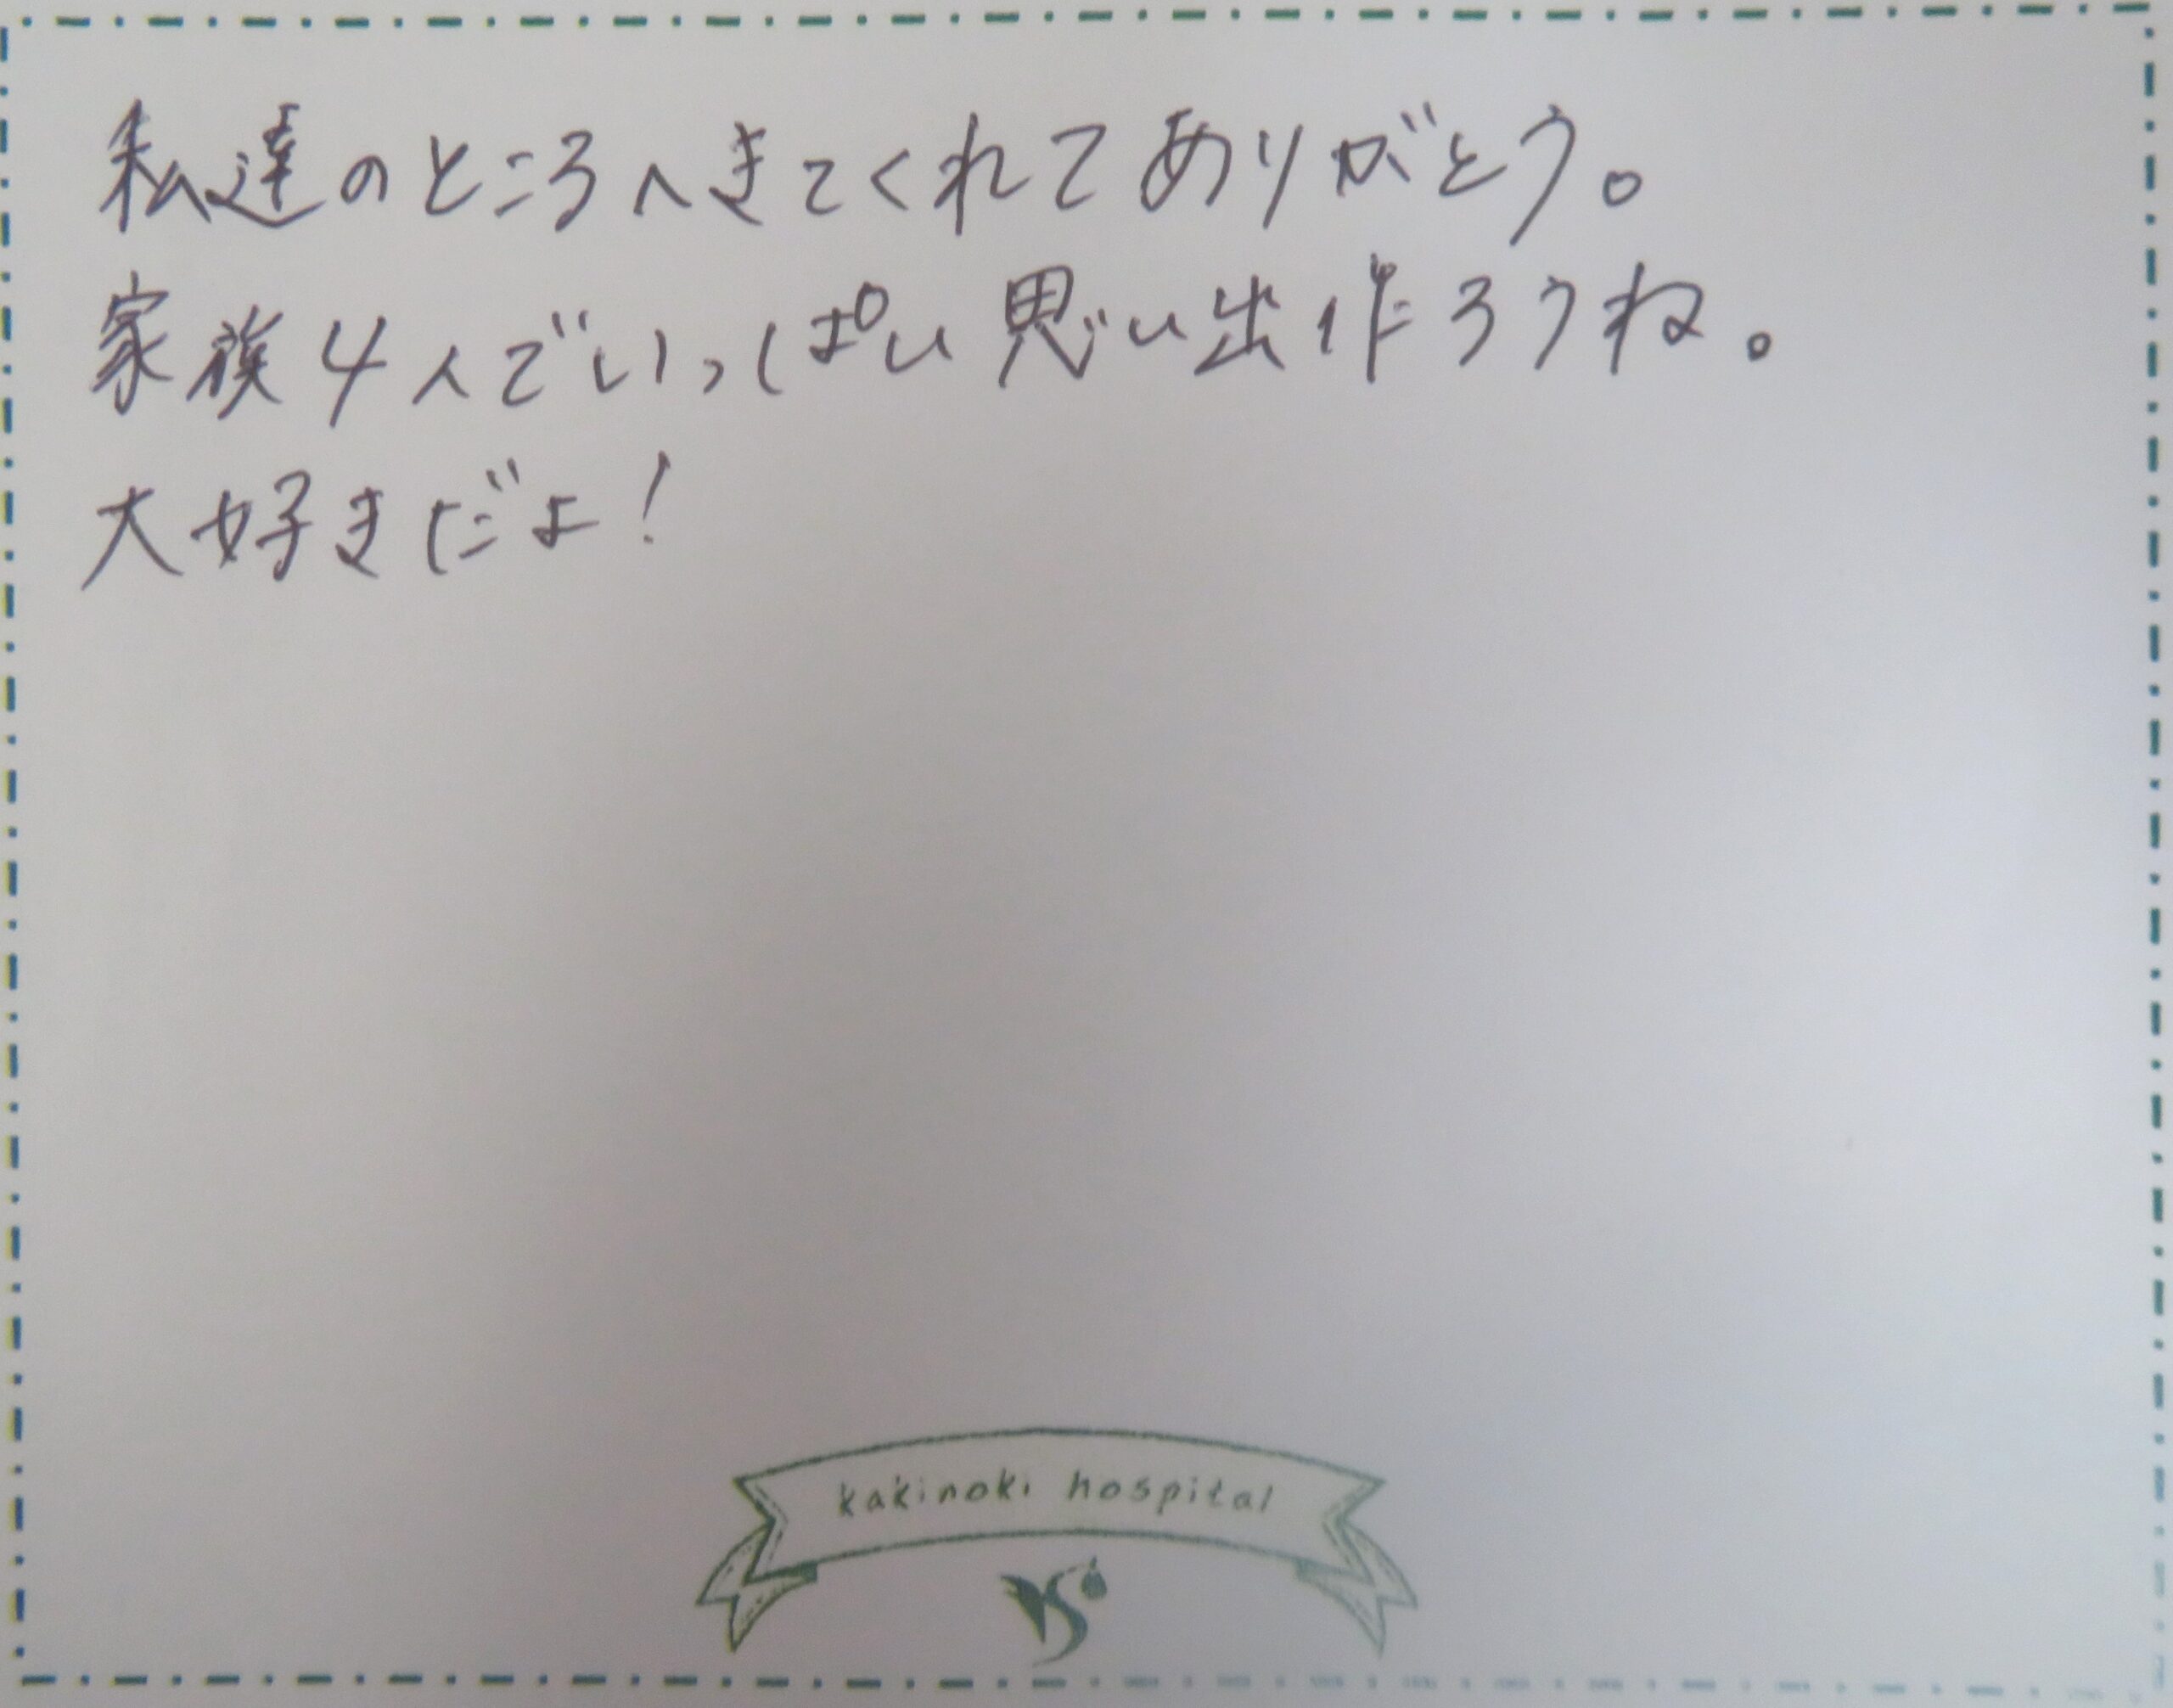 私達のところへきてくれてありがとう。
家族4人でいっぱい思い出作ろうね。
大好きだよ!
kakinoki hospital